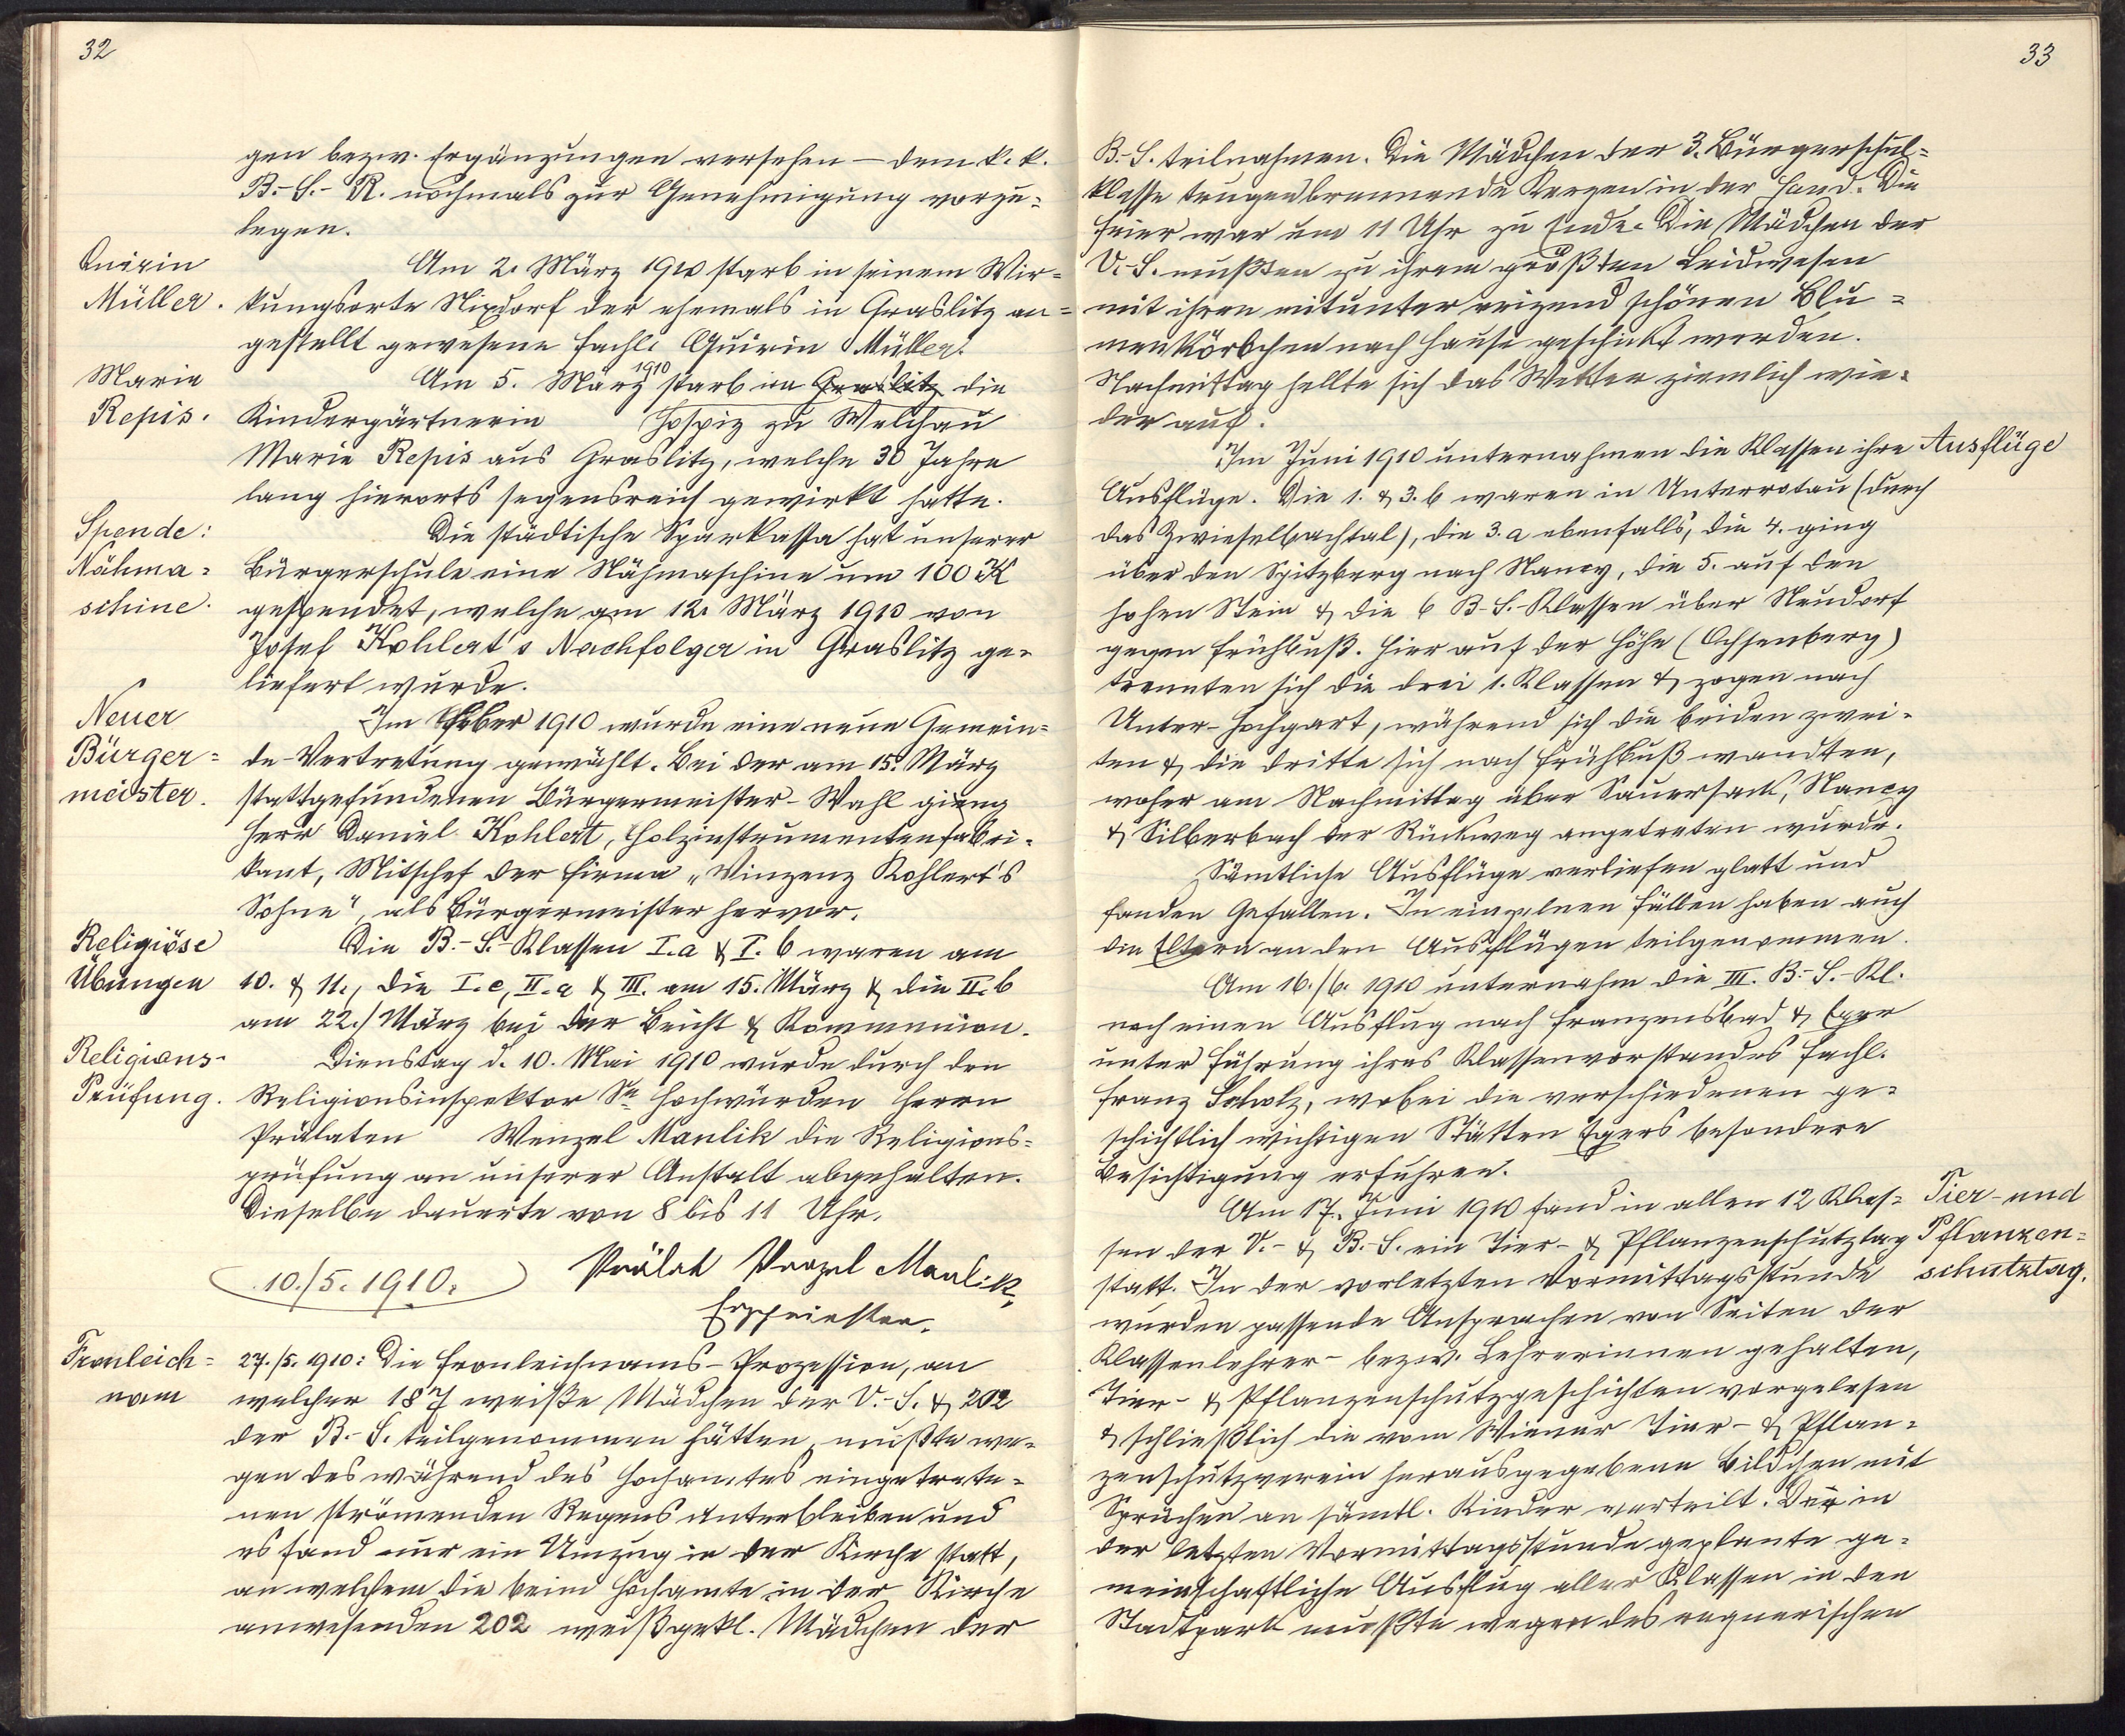 32
gen bezw. Ergänzungen versehen – dem k. k.
B.-S.-R. nochmals zur Genehmigung vorzu=
legen.
Quirin
Müller.
Am 2. März 1910 starb in seinem Wir=
kungsorte Nixdorf der ehemals in Graslitz an=
gestellt gewesene Fachl. Quirin Müller.
Marie
Repis.
Am 5. März 1910 starb im Graslitz die
Kindergärtnerin Hospiz zu Welchau
Marie Repis aus Graslitz, welche 30 Jahre
lang hierorts segensreich gewirkt hatte.
Spende:
Nähma=
schine.
Die städtische Sparkassa hat unserer
Bürgerschule eine Nähmaschine um 100 K
gespendet, welche am 12. März 1910 von
Josef Kohlert's Nachfolger in Graslitz ge=
liefert wurde.
Neuer
Bürger=
meister.
Im Feber 1910 wurde eine neue Gemein=
de-Vertretung gewählt. Bei der am 15. März
stattgefundenen Bürgermeister-Wahl gieng
Herr Daniel Kohlert, Holzinstrumentenfabri=
kant, Mitschef der Firma „Vinzenz Kohlert's
Söhne", als Bürgermeister hervor.
Religiöse
Übungen
Die B.-S.-Klassen I.a & I.b waren am
10. & 11., die I.c, II.a & III. am 15. März & die II.b
am 22./März bei der Beicht & Kommunion.
Religions-
Prüfung.
Dienstag d. 10. Mai 1910 wurde durch den
Religionsinspektor Se Hochwürden Herrn
Prälaten Wenzel Maulik die Religions=
prüfung an unserer Anstalt abgehalten.
Dieselbe dauerte von 8 bis 11 Uhr.
10./5. 1910.
Prälat Wenzel Maulik,
Erzpriester.
Fronleich=
nam
27./5. 1910: Die Fronleichnams-Prozession, an
welcher 187 weiße Mädchen der V.-S. & 202
der B.-S. teilgenommen hätten, mußte we=
gen des während des Hochamtes eingetrete=
nen strömenden Regens unterbleiben und
es fand nur ein Umzug in der Kirche statt,
an welchem die beim Hochamte in der Kirche
anwesenden 202 weißgekl. Mädchen der
33
B.-S. teilnahmen. Die Mädchen der 3. Bürgerschul=
klasse trugen brennende Kerzen in der Hand. Die
Feier war um 11 Uhr zu Ende. Die Mädchen der
V.-S. mußten zu ihrem größten Leidwesen
mit ihren mitunter reizend schönen Blu=
menkörbchen nach Hause geschickt werden.
Nachmittag hellte sich das Wetter ziemlich wie=
der auf.
Ausflüge
Im Juni 1910 unternahmen die Klassen ihre
Ausflüge. Die 1. & 3.b waren in Unterrotau (durch
das Zwieselbachtal), die 3.a ebenfalls, die 4. ging
über den Spitzberg nach Nancy, die 5. auf den
hohen Stein & die 6 B-S.-Klassen über Neudorf
gegen Frühbuß. Hier auf der Höhe (Ochsenberg)
trennten sich die drei 1. Klassen & zogen nach
Unter-Hochgart, während sich die beiden zwei=
ten & die dritte sich nach Frühbuß wandten,
woher am Nachmittag über Sauersack, Nancy
& Silberbach der Rückweg angetreten wurde.
Sämtliche Ausflüge verliefen glatt und
fanden Gefallen. In einzelnen Fällen haben auch
die Eltern an den Ausflügen teilgenommen.
Am 16./6. 1910 unternahm die III. B.-S.-Kl.
noch einen Ausflug nach Franzensbad & Eger
unter Führung ihres Klassenvorstandes Fachl.
Franz Scholz, wobei die verschiedenen ge=
schichtlich wichtigen Stätten Egers besondere
Besichtigung erfuhren.
Tier- und
Pflanzen=
schutztag.
Am 17. Juni 1910 fand in allen 12 Klas=
sen der V.- & B.-S. ein Tier- & Pflanzenschutztag
statt. In der vorletzten Vormittagsstunde
wurden passende Ansprachen von Seiten der
Klassenlehrer- bezw. Lehrerinnen gehalten,
Tier- & Pflanzenschutzgeschichten vorgelesen
& schließlich die vom Wiener Tier- & Pflan=
zenschutzverein herausgegebene Bildchen mit
Sprüchen an sämtl. Kinder verteilt. Der in
der letzten Vormittagsstunde geplante ge=
meinschaftliche Ausflug aller Klassen in den
Stadtpark mußte wegen des regnerischen